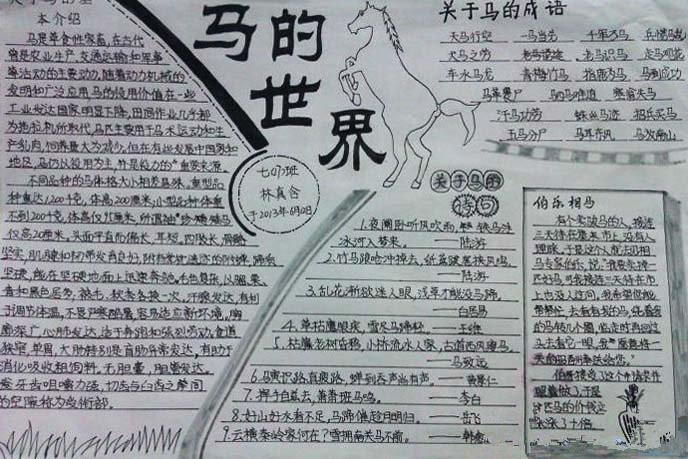 本介绍
马是草食性家畜，在古代
曾是农业生产、交通运输和军事
等活动的主要动力，随着动力机械的
发明和广泛应用，马的役用价值在一些
工业发达国家明显下降，田间作业几乎全
为拖拉机所取代，马匹主要用于马术运动和生
产乳肉，饲养量大为减少，但在有些发展中国家和
地区，马仍以役用为主，并是役力的重要来源。
不同品种的马体格大小相差悬殊，重型品
种重达1200千克，体高200厘米；小型品种体重
不到200千克，体高仅95厘米，所谓袖珍矮马
仅高20厘米。头面平直而偏长，耳短，四肢长，骨骼
坚实，肌腱和韧带发育良好，附有掌枕遗迹的附蝉，蹄质
坚硬，能在坚硬地面上迅速奔驰。毛色复杂，以骝、栗、
青和黑色居多，被毛，秋各换一次，汗腺发达，有利
于调节体温，不畏严寒酷暑，容易适应新环境，胸
廓深广，心肺发达，适于奔跑和强烈劳动，食道
狭窄，单胃，大肠特别是盲肠异常发达，有助于
消化吸收粗饲料，无胆囊，胆管发达，
齿咀嚼力强，切齿与臼齿之间
的空隙称为
马的
世
界
七(9)班
林真含
于2013年6月0日
关于马的成语
天马行空 一马当先 千军万马
犬马之劳 老马识途 走马观花
车水马龙 青梅竹马 指鹿为马 马到成功
马革裹尸 塞翁失马
汗马功劳 蛛丝马迹 招兵买马
马放南山
关于马的
诗句
1.夜阑卧听风吹雨，铁马
冰河入梦来。——陆游
2.竹马踉蹡冲掉去，纸鸢跋扈挟风鸣。
——陆游
3.乱花渐欲迷人眼，浅草才能没马蹄。
——白居易
4.草枯鹰眼疾，雪尽马蹄轻。——王维
5.枯藤老树昏鸦，小桥流水人家，古道西风瘦马。
——马致远
6.马寒识路真疲路，蝉到吞声尚有声。——黄景仁
7.挥手自兹去，萧萧班马鸣。——李白
8.好山好水看不足，马蹄催趁月明归。——岳飞
9.云横秦岭家何在？雪拥南关马不前。——韩愈
伯乐相马
有个卖骏马的人，接连
三天待在集市上，没有人
理睬，于是这个人就去见相
马专家伯乐，说：“我要卖掉一
匹好马，可是接连三天待在市
上也没人过问，我希望您能
帮帮忙，去看看我的马，绕着我
的马转几个圈，临走时再回过
头去看它一眼，我愿意将一
天的报酬奉送给您。”
伯乐接受了这个
匹马的价钱立
涨了十倍